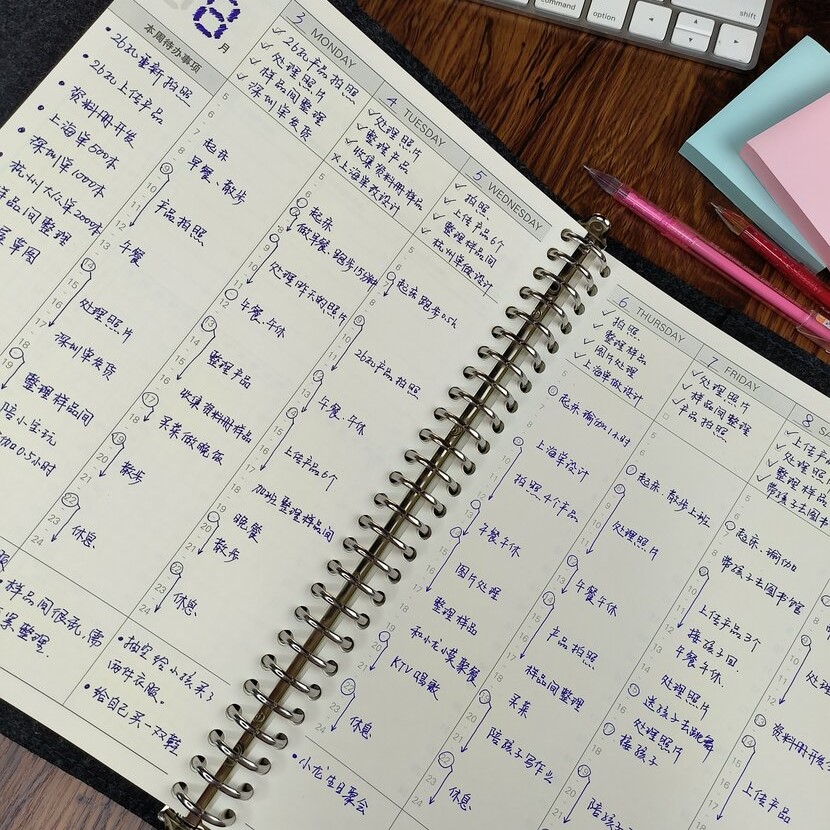 8月
本周待办事项
• 26款重新拍照
• 26款上传产品
• 资料册开发
• 上海单500本
• 深圳单1000本
• 杭州大众单200本
样品间整理
3 MONDAY
✓ 26款产品拍照
✓ 处理照片
✓ 样品间整理
✓ 深圳单发货
起床
早餐、散步
产品拍照
午餐
处理照片
深圳单发货
整理样品间
陪小宝玩
瑜伽0.5小时
休息
4 TUESDAY
✓ 处理照片
✓ 整理产品
✓ 收集资料册样品
× 上海单改设计
起床
做早餐、跑步15分钟
处理昨天的照片
午餐、午休
整理产品
收集资料册样品
买菜做晚饭
散步
休息
5 WEDNESDAY
✓ 拍照
✓ 上传产品6个
✓ 整理样品间
✓ 杭州单做设计
起床跑步0.5h
26款产品拍照
午餐、午休
上传产品6个
加班整理样品间
晚餐
散步
休息
• 样品间很乱,需
整理.
• 抽空给小孩买了
两件衣服.
• 给自己买一双鞋
6 THURSDAY
✓ 拍照.
✓ 整理样品
✓ 图片处理
✓ 上海单做设计
起床瑜伽1小时
上海单设计
拍照4个产品
午餐午休
图片处理
整理样品
和小龙小莫聚餐
KTV唱歌
休息
• 小龙生日聚会
7 FRIDAY
✓ 处理照片
✓ 样品间整理
□ 产品拍照
起床、散步上班
处理照片
午餐午休
产品拍照
样品间整理
买菜
陪孩子写作业
休息
8 S
✓ 上传产
✓ 处理照
✓ 整理样品
✓ 带孩子去图书
起床、瑜伽
带孩子去图书馆
上传产品3个
接孩子回
午餐午休.
处理照片
送孩子去跳舞
处理照片
接孩子
陪孩子
处理
资料册开发
上传产品
command
option
shift